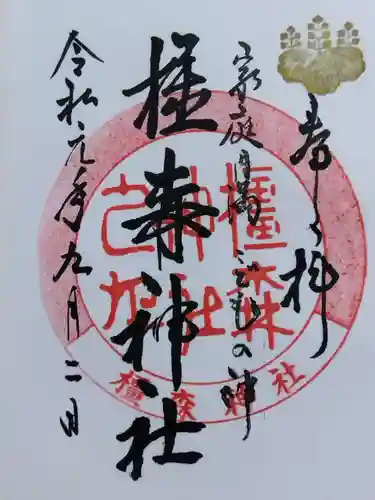 奉拝
家庭円満こどもの神
橿森神社
令和元年九月二日
橿森
神社
橿森神社